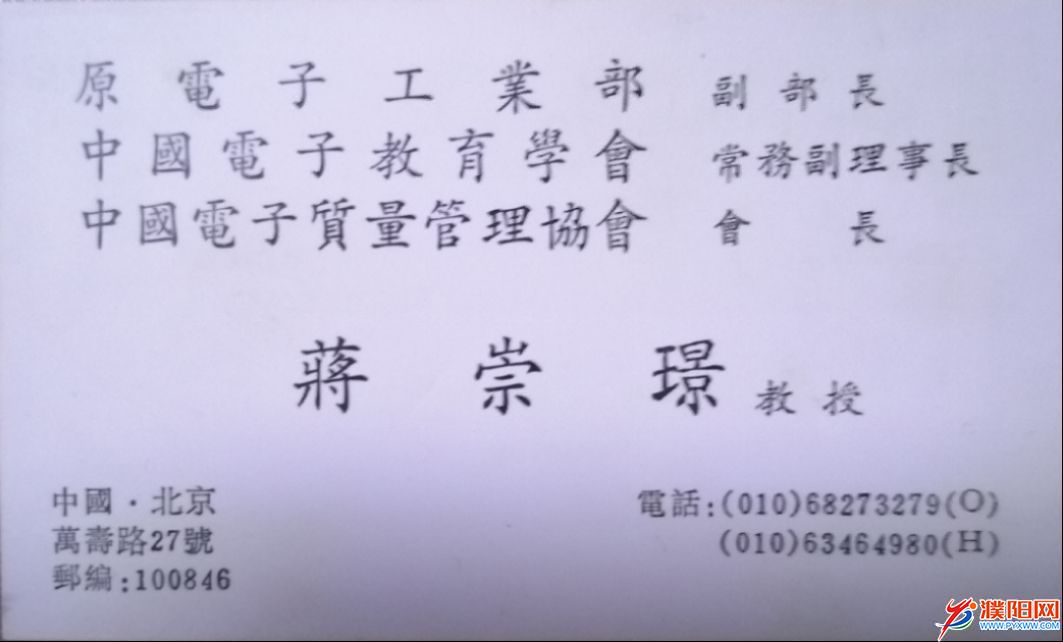 原電子工業部 副部長
中國電子教育學會 常務副理事長
中國電子質量管理協會 會長
蔣崇璟 教授
中國·北京
萬壽路27號
郵編:100846
電話:(010)68273279(O)
(010)63464980(H)
濮阳网
WWW.PYXWW.COM